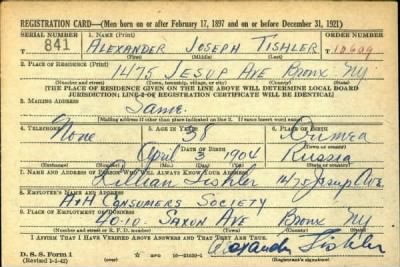 REGISTRATION CARD—(Men born on or after February 17, 1897 and on or before December 31, 1921)
SERIAL NUMBER 1. NAME (Print) ORDER NUMBER
841 ALEXANDER JOSEPH TISHLER 10609
(First) (Middle) (Last)
2. PLACE OF RESIDENCE (Print)
1475 JESUP AVE BRONX NY
(Number and street) (Town, township, village, or city) (County) (State)
[THE PLACE OF RESIDENCE GIVEN ON THE LINE ABOVE WILL DETERMINE LOCAL BOARD
JURISDICTION; LINE 2 OF REGISTRATION CERTIFICATE WILL BE IDENTICAL]
3. MAILING ADDRESS
Same
[Mailing address if other than place indicated on line 2. If same insert word same]
4. TELEPHONE 5. AGE IN YEARS 6. PLACE OF BIRTH
None 38
DATE OF BIRTH (Town or county)
April 3 1904 Russia
(Exchange) (Number) (Mo.) (Day) (Yr.) (State or country)
7. NAME AND ADDRESS OF PERSON WHO WILL ALWAYS KNOW YOUR ADDRESS
Lillian Tishler 1475 Jesup Ave
8. EMPLOYER'S NAME AND ADDRESS
A+H CONSUMERS SOCIETY
9. PLACE OF EMPLOYMENT OR BUSINESS
40-10 SAXON AVE BRONX NY
(Number and street or R. F. D. number) (Town) (County) (State)
I AFFIRM THAT I HAVE VERIFIED ABOVE ANSWERS AND THAT THEY ARE TRUE.
D. S. S. Form 1
(Revised 1-1-42) (over) Alexander Tishler
(Registrant's signature)